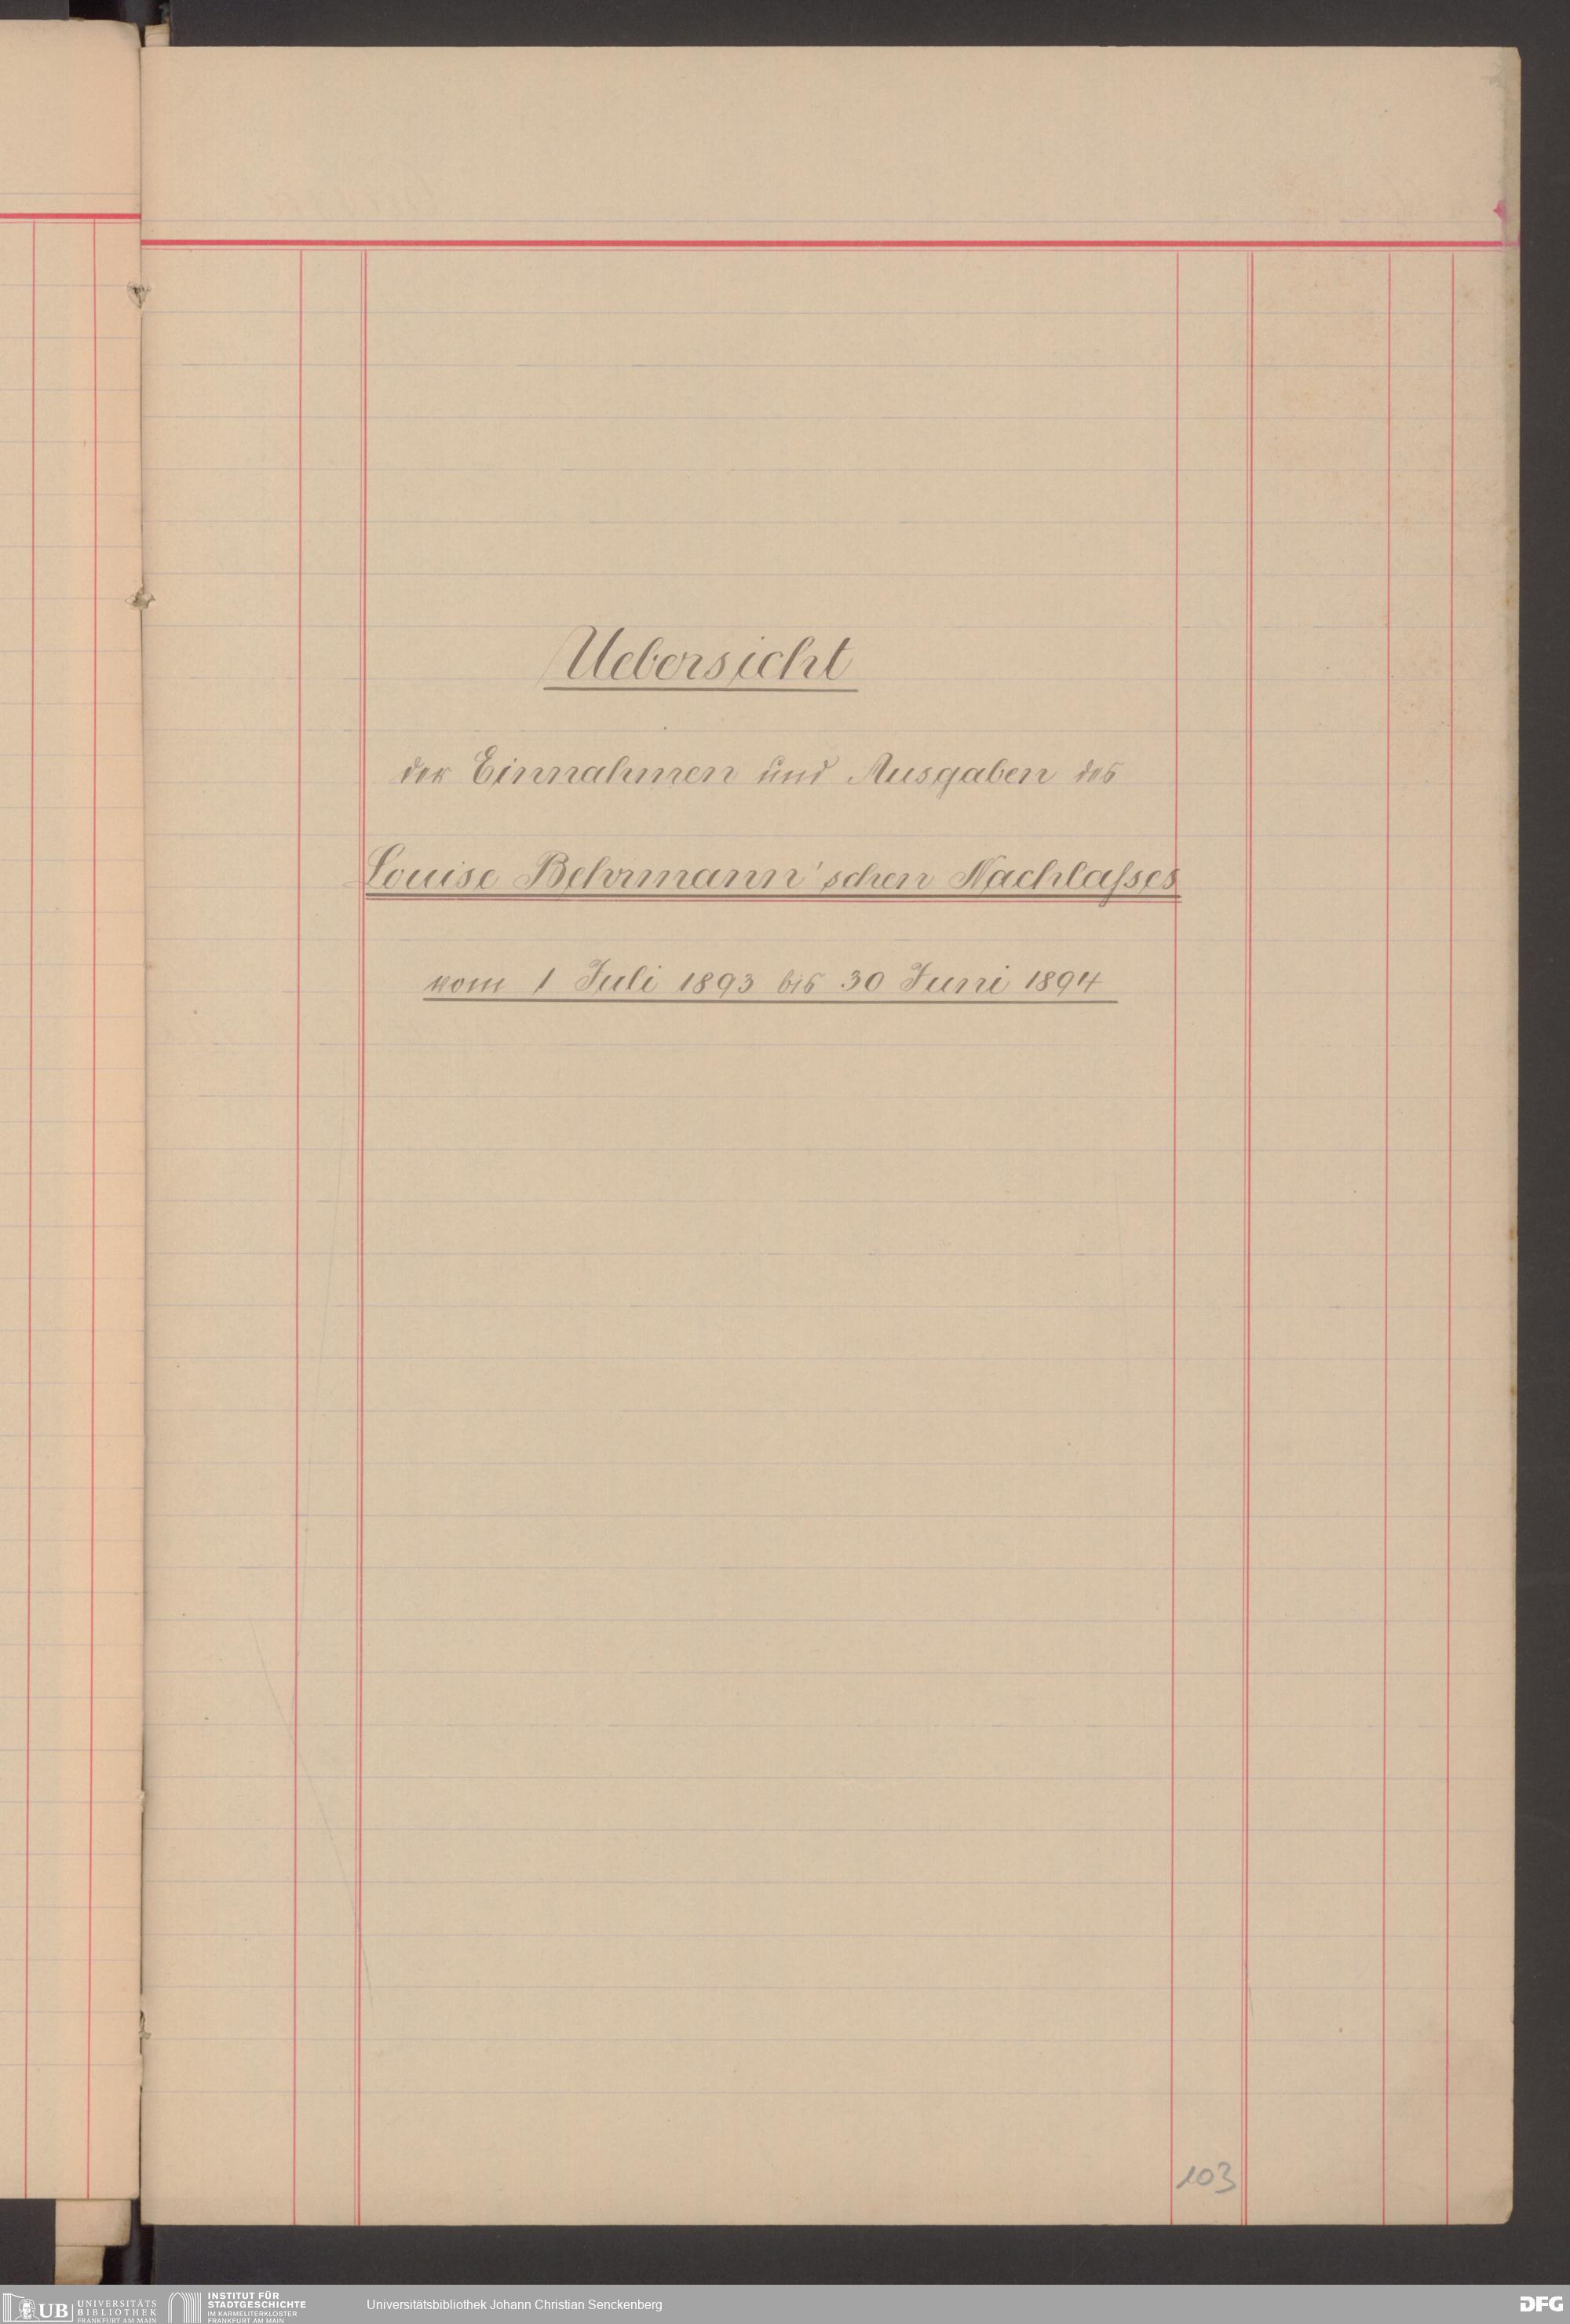 Uebersicht
der Einnahmen und Ausgaben des
Louise Behrmann'schen Nachlaſses
vom 1 Juli 1893 bis 30 Juni 1894
103
UB UNIVERSITÄTS
BIBLIOTHEK
FRANKFURT AM MAIN
INSTITUT FÜR
STADTGESCHICHTE
IM KARMELITERKLOSTER
FRANKFURT AM MAIN
Universitätsbibliothek Johann Christian Senckenberg
DFG